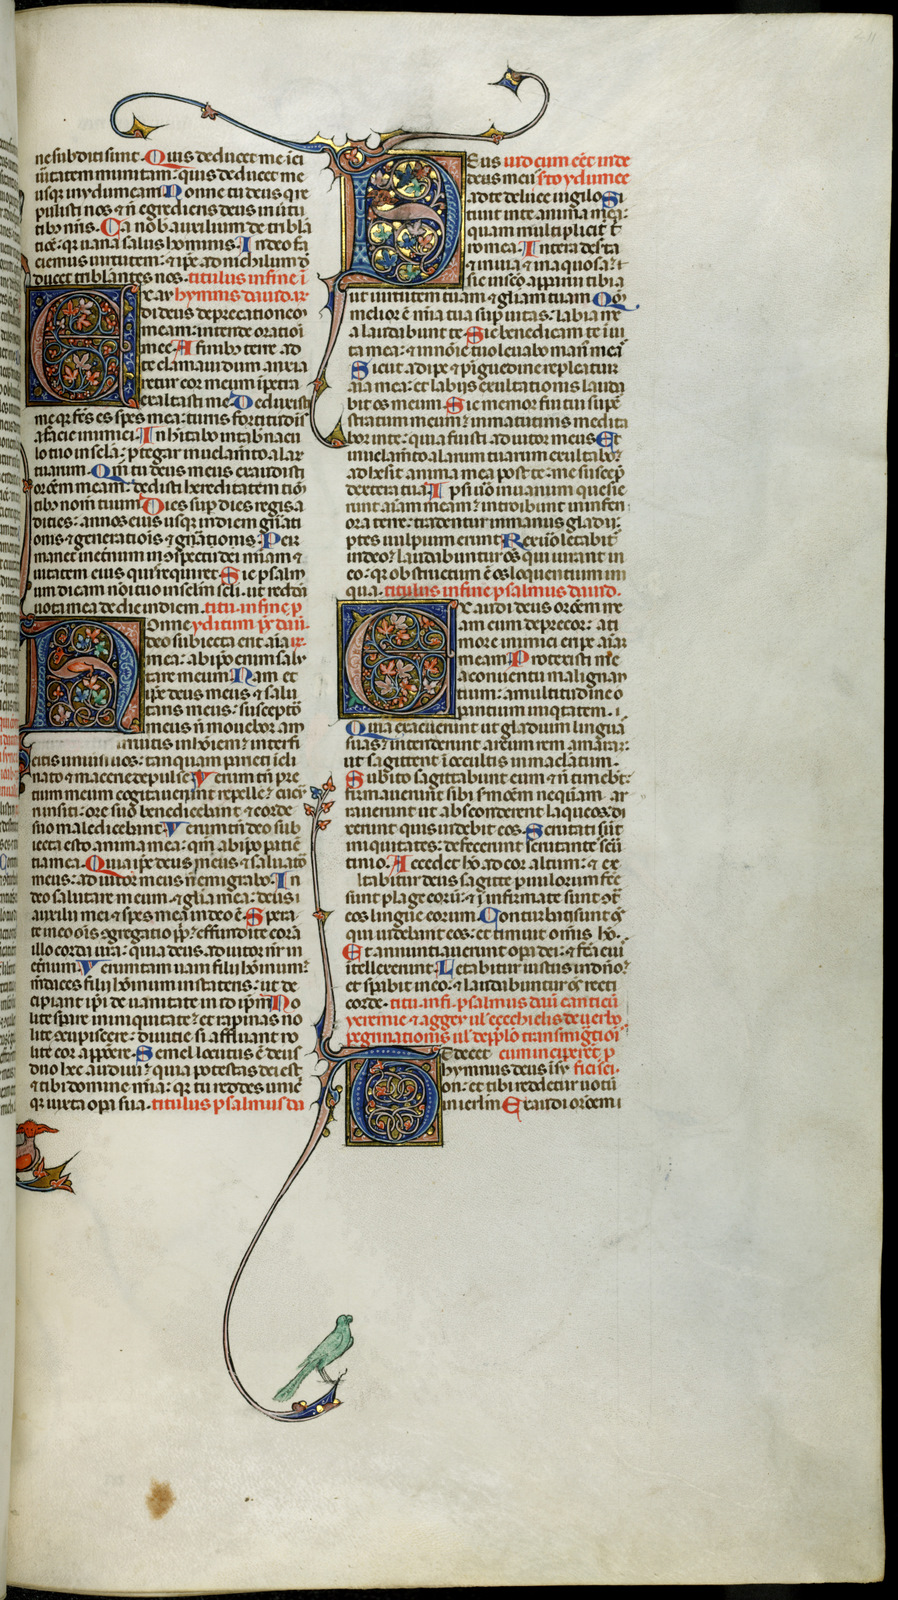 ne subditi sunt. Quis deducet me ī ci
uitatem munitam: quis deducet me
usq; in ydumeam Nonne tu deus q' re
pulisti nos & n̄ egredieris deus in ūtu
tibȝ nr̄is. Da nob' auxilium de tribla
tiōe: q' uana salus hominis. In deo fa
ciemus uirtutem: & ip̄e ad nichilum d
ducet tribl'antes nos. titulus in finē ī
Exau hymnis dauid.
di deus deprecationē
meam: intende orationi
mee A finibȝ terre ad
te clamaui dum anxia
retur cor meum ī petra
exaltasti me Deduxisti
me q' fc̄s es spes mea: turris fortitudīs
a facie inimici. Inh'itabo in tab'nacu
lo tuo in sc̄la: p̄tegar in uelam̄to alar
tuarum. Qm̄ tu deus meus exaudisti
orōem meam: dedisti hereditatem tim̄
tibȝ nom̄ tuum Dies sup dies regis a
dities: annos eius usq; in diem gn̄ati
onis & generatiōis & gn̄ationis. Per
manet in et̄num in ɔspectu dei mīam &
ueritatem eius quis requiret Sic psalm
um dicam nōi tuo in sc̄lm sc̄li. ut reddā
uota mea de die in diem. titu. in finē p̄
Nonne yditum ps̄ daui.
deo subiecta erit aīa
mea: ab ip̄o enim salu
tare meum Nam et
ip̄e deus meus & salu
taris meus: susceptor
meus n̄ mouebor am
irruitis in hōiem: interfi
citis uniuersi uos: tanquam parieti īcli
nato & macerie depulse Verum tn̄ pre
tium meum cogitauerunt repelle': cuc'
in siti: ore suo benedicebant & corde
suo maledicebant Verum tn̄ deo sub
iecta esto anima mea: qm̄ ab ip̄o patiē
tia mea. Quia ip̄e deus meus & saluator
meus: adiutor meus n̄ emigrabo. In
deo salutare meum & gl̄a mea: deus
auxilii mei & spes mea in deo ē Spera
te in eo oīs ɔgregatio pp̄li: effundite corā
illo corda ur̄a: quia deus adiutor nr̄ in
et̄num. Verumtam uani filii hōminum:
mendaces filii hōminum in stateris: ut de
cipiant ip̄i de uanitate in id ip̄m No
lite sp̄are in iniquitate: & rapinas no
lite ɔcupiscere: diuitie si affluant no
lite cor appōere. Semel locutus ē deus
duo hec audiui: quia potestas dei est
& tibi domine mīa: q' tu reddes unic'
q' iuxta opa sua. titulus psalmus da
Deus uid cum eēt in de
deus meus s'to ydumee
ad te de luce uigilo Si
tiuit in te anima mea:
quam multiplicit' t'
ro mea. In terra des'ta
& inuia & inaquosa: s'
ic in sc̄o apparui tibi a
ut uid'em uirtutem tuam & gl̄iam tuam Qm̄
melior ē mīa tua sup uitas: labia me
a laudabunt te Sic benedicam te ī ui
ta mea: & in nōie tuo leuabo man' meas
Sicut adipe & p̄guedine repleatur
aīa mea: et labiis exultationis lauda
bit os meum Sic memor fui tui sup'
stratum meum: in matutinis medita
bor in te: quia fuisti adiutor meus Et
in uelam̄to alarum tuarum exultabo:
adhesit anima mea post te: me suscep'
dextera tua Ipsi u'o in uanum quesie
runt aīam meam: introibunt in inferi
ora terre: tradentur in manus gladii:
ptes uulpium erunt Rex u'o letabit'
in deo: laudabuntur oēs qui iurant in
eo: q' obstructum ē os loquentium in
iqua. titulus in finē psalmus dauid.
Exaudi deus orōem me
am cum deprecor: a ti
more inimici eripe aīam
meam Protexisti me
a conuentu malignan
tium: a multitudine o
perantium iniquitatem.
Quia exacuerunt ut gladium linguas
suas: intenderunt arcum rem amarā:
ut sagittent ī occultis immaculatum.
Subito sagittabunt eum & n̄ timeb't:
firmauerunt sibi s'monem nequam. nar
rauerunt ut absconderent laqueos: di
xerunt quis uidebit eos. Scrutati sūt
iniquitates: defecerunt scrutantes scru
tinio. Accedet hō ad cor altum: & ex
altabitur deus sagitte puulorum fc̄e
sunt plage eorū: & īfirmate sunt ɔt'
eos lingue eorum Conturbati sunt oēs
qui uidebant eos: et timuit omīs hō.
Et annuntiauerunt opa dei: & fc̄a eiu'
ītellexerunt Letabitur iustus in dn̄o:
et sp̄abit in eo: & laudabuntur oēs recti
corde. titu. infi. psalmus dauid canticū
yeremie & aggei ul' ezechielis de uerbo
pegrinationis ul' de pp̄lo transmigtiōi'
Te decet cum inciperet p
hymnus deus in sy ficisci.
on: et tibi reddetur uotum
in ierlm̄ Exaudi orōem m